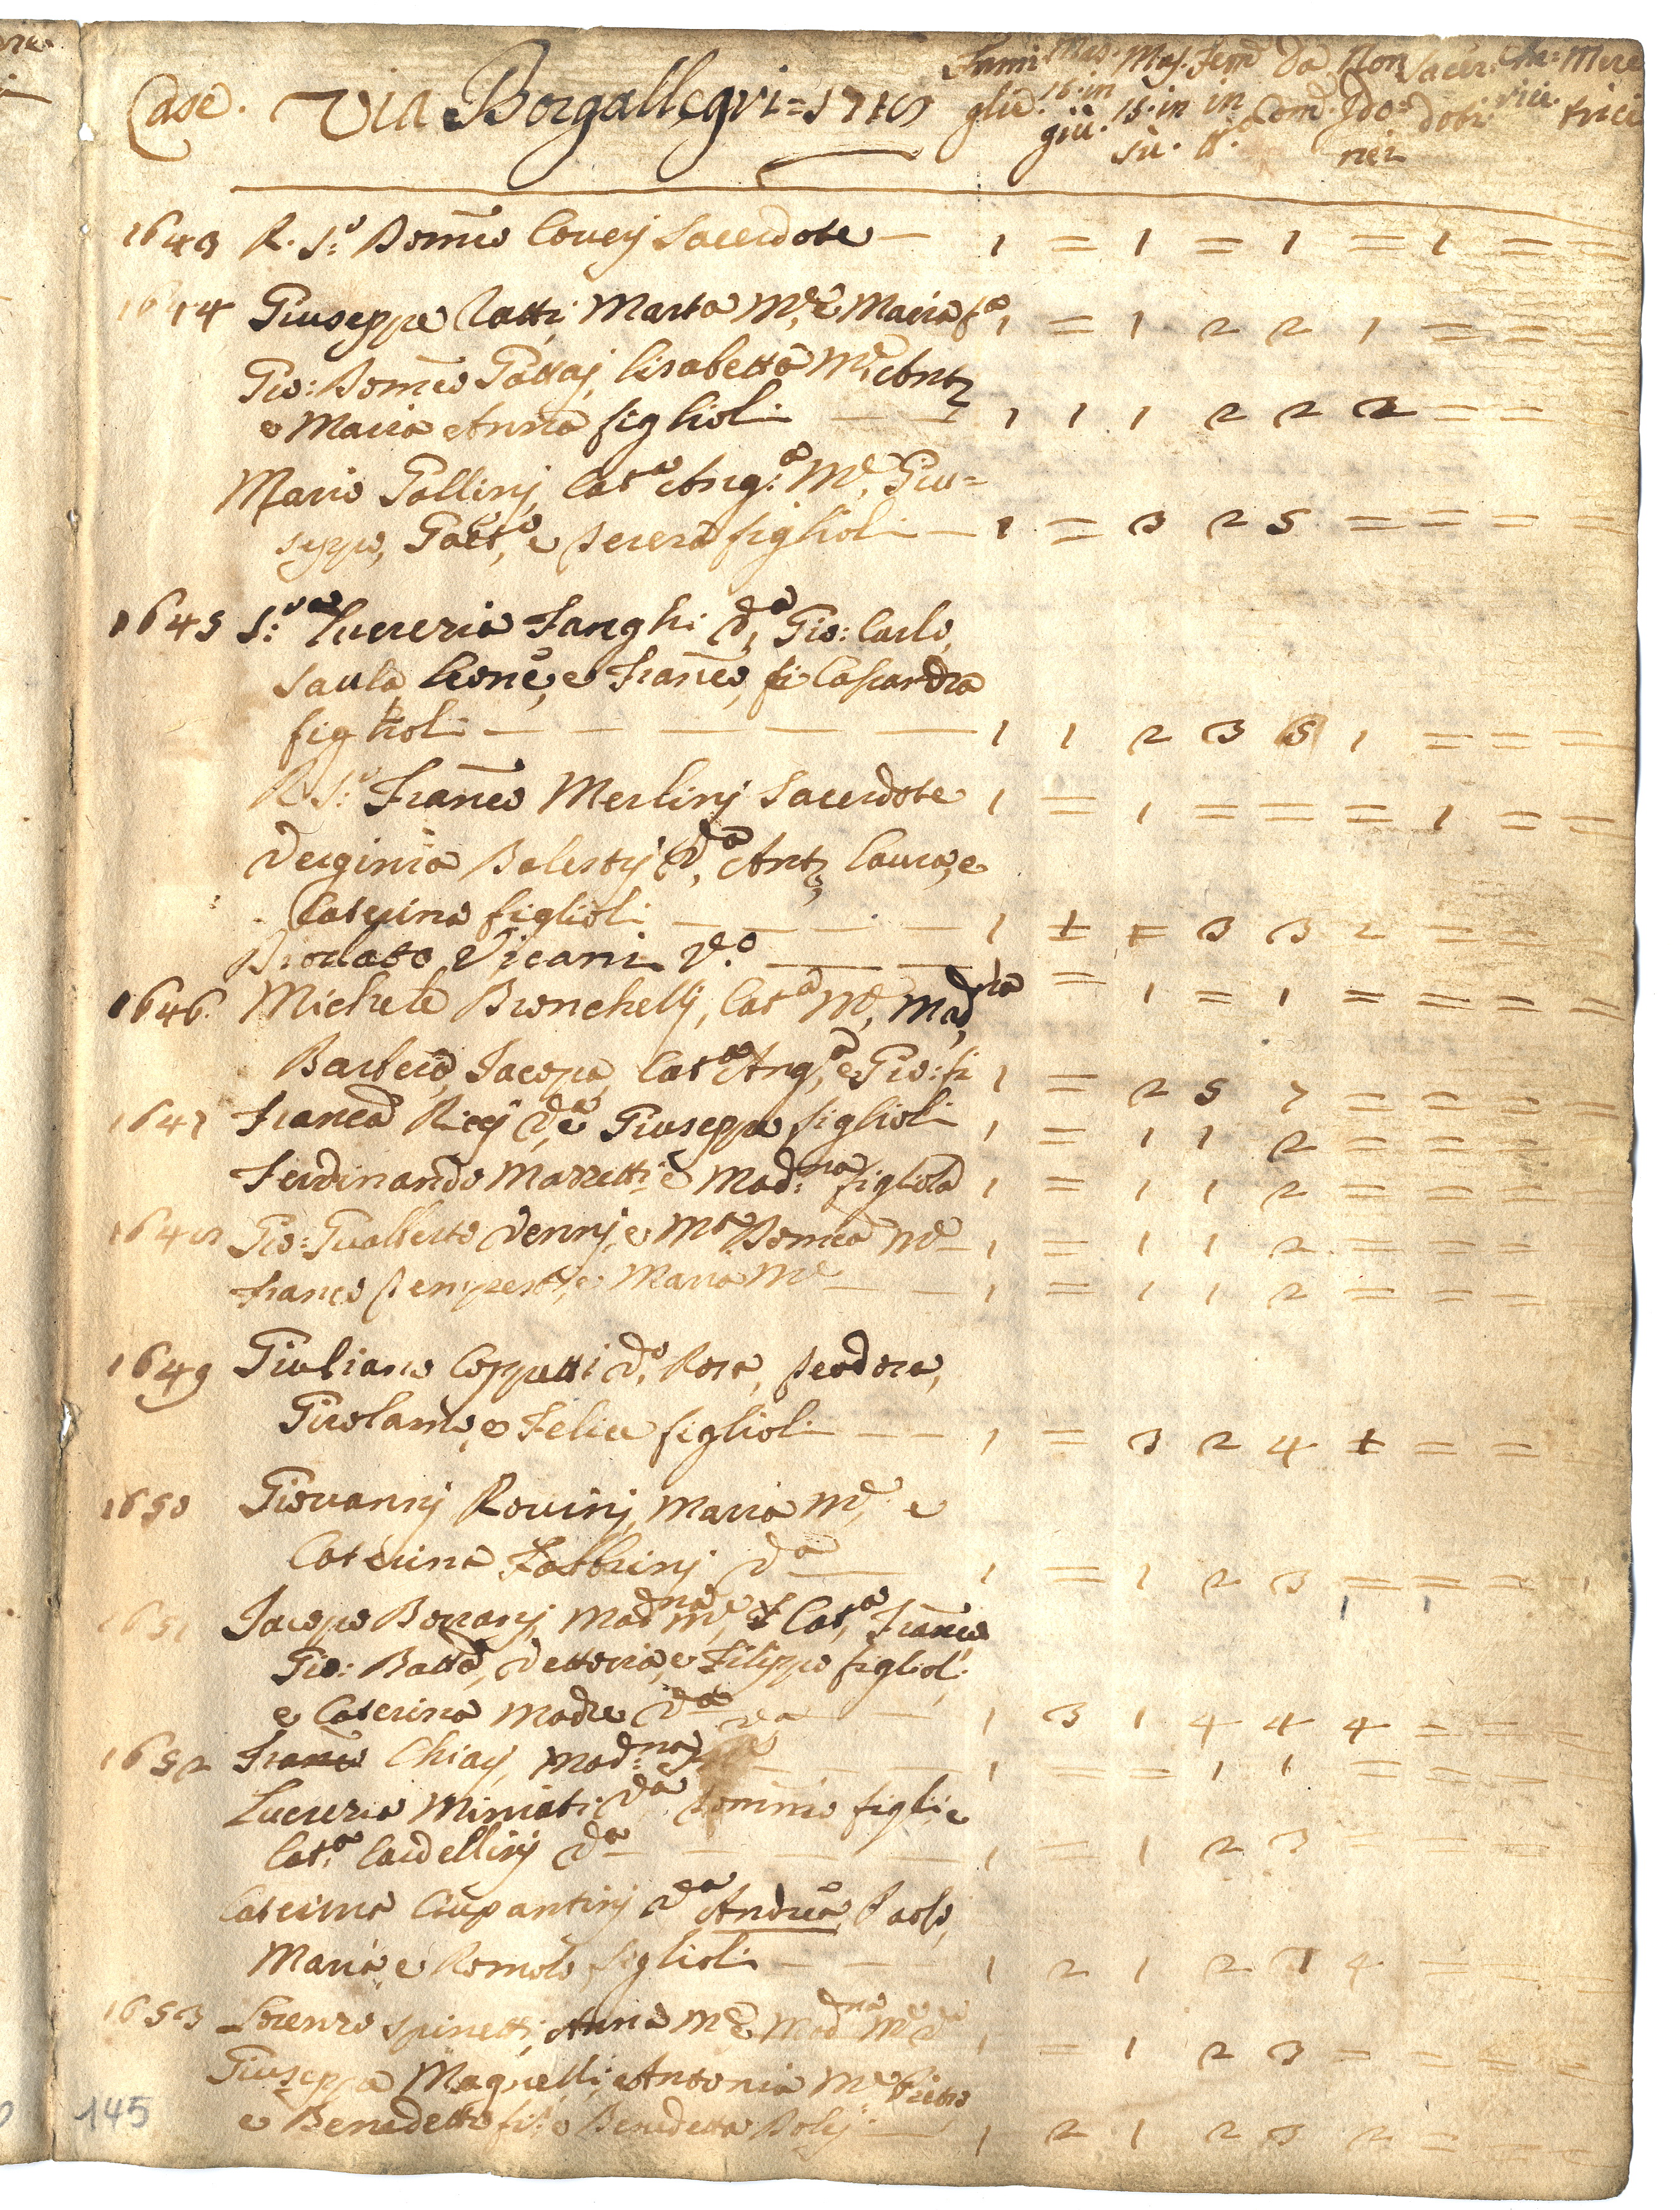 Case. Via Borgallegri = 1710
Fami glie. Mas. 16. in giù. Mas. 15. in sù. Fem in tt.º Da Com. Non Ido= nei Sacer: doti Che: rici. Mere trici
1643 R. S:º Domco Covey Sacerdote — 1 = 1 = 1 = 1 = =
1644 Giuseppe Catti Marta Me, e Maria fa 1 = 1 2 2 1 = = =
Gio: Domco Gattaj, Lisabetta Me, Anto
e Maria Anna figlioli — — 1 1 1 2 2 2 = = =
Mario Gallinj, Cata Ang:a Me, Giu=
seppe, Gaeto, e Teresa figlioli — 1 = 3 2 5 = = = =
1645 S:ra Lucrezia Fanghi Va, Gio: Carlo,
Paula Leone, e Franco, fi Casandra
figlioli — — — — — 1 1 2 3 5 1 = = =
R. S:º Franco Merlinj Sacerdote 1 = 1 = = = 1 = =
Verginia Balestrj Va, Anto, Laura, e
Caterina figlioli — — — 1 1 1 3 3 2 = = =
Diodato Vicani Vo — — = 1 = 1 = = = =
1646. Michele Bronchellj, Cata Me, Madna
Barbera, Iacopo, Cata Anga, e Gio: fi 1 = 2 5 7 = = = =
1647 Franca Riccj Va, e Giuseppe figlioli 1 = 1 1 2 = = = =
Ferdinando Mazzetti e Mad:na figliola 1 = 1 1 2 = = = =
1648 Gio: Gualberto Vennj, e Ma Domca Me — 1 = 1 1 2 = = = =
Franco Tempestj, e Maria Me — — 1 = 1 1 2 = = = =
1649 Giuliano Coppetti Vo, Rosa, Teodora,
Girolamo, e Felice figlioli — — 1 = 3 2 4 1 = =
1650 Giovannj Rovinj, Maria Me, e
Caterina Fabbrinj Va — 1 = 1 2 3 = = = =
1651 Iacopo Borranj, Madna Me, Cata, Franco
Gio: Batta, Vettoria, e Filippo figlioli
e Caterina Madre Va — — 1 3 1 4 4 4 = = =
1652 Franco Chiarj, Mad:na — — 1 = = 1 1 = = =
Lucrezia Miniati Va Domco figli e
Cat:a Cardellinj Va — — — 1 = 1 2 3 = = =
Caterina Ciupantinj Va Andrea, Paolo,
Maria e Romolo figlioli — — 1 2 1 2 3 4 = = =
1653 Lorenzo Spinetti, Anna Me, e Madna Me Va 1 = 1 2 3 = = = =
Giuseppe Magnelli, e Antonia Me Pietro
e Benedetto fi: e Benedetta Polij — 1 2 1 2 3 2 = = =
145